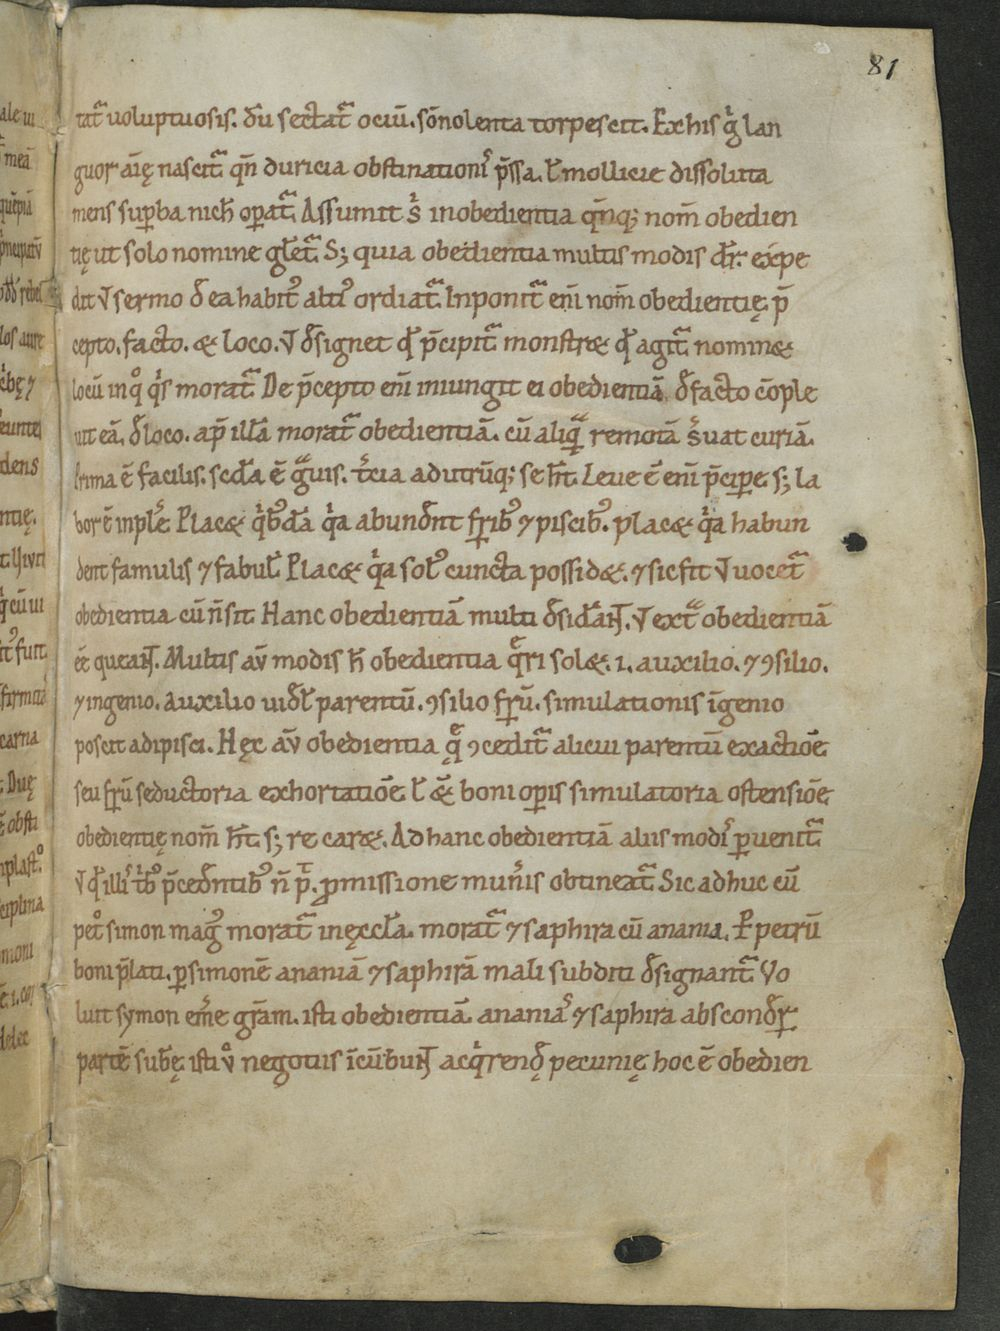 81
tat᷑ uoluptuosis. dū sectat᷑ ociū. sōnolenta torpescit. Ex his gͥ lan
guor aīę nascit᷑ qn̄ duricia obstinationiˀ p̄ssa. ł mollicie dissoluta
mens supba nich̄ opat᷑. Assumit s᷑ inobedientia nom̄ obedien
tię ut solo nomine gł̄et᷑. S; quia obedientia multis modis dr̄. expe
dit ỽ sermo đ ea habitˀ altiˀ ordiat᷑. Inponit᷑ eni̅ nom̄ obedientię p̄
cepto. facto. & loco. ỽ đsignet qđ p̄cipit᷑ monstr& qđ agit᷑ nomin&
locū in qͦ qͥs morat᷑. De p̄cepto eni̅ iniungit ei obedientiā. đ facto cōple
uit eā. đ loco. ap̄ illā morat᷑ obedientiā. cū aliqͣ remotā s᷑uat curiā.
Prima ē facilis. scđa ē gͣuis. t᷑cia ad utrūq; se ht̄. Leue ē eni̅ p̄cipe s; la
bor ē inple᷑. Plac& qͥbđā qͥa abunđnt frībˀ ⁊ piscibˀ. plac& qͥa habun
dent famulis ⁊ fabuł. Plac& qͥa solˀ cuncta possid&. ⁊ sic fit ỽ uocet᷑
obedientia cū n̄ sit. Hanc obedientiā multi đsidāɴᴛ. ỽ extͣ obedientiā
ēē queaɴᴛ. Multis aū modis h̄ obedientia qͣri sol&. .i. auxilio. ⁊ ꝯsilio.
⁊ ingenio. Auxilio uiđł parentū. ꝯsilio frm̄. simulationis īgenio
poscit adipisci. Hęc aū obedientia qͣ ꝯcedit᷑ alicui parentū exactiōe
seu frm̄ seductoria exhortatiōe ł &̄ boni opis simulatoria ostensiōe
obedientię nom̄ ht̄ s; re car&. Ad hanc obedientiā aliis modiˀ puenit᷑
ỽ qđ illiˀ t͛bˀ p̄ceđntibˀ n̄ p̄t. ꝓmissione mun᷑is obtineat᷑. Sic adhuc cū
petͦ simon magˀ morat᷑ in ęccł̄a. morat᷑ ⁊ saphira cū anania. P petrū
boni p̄lati. p simonē ananiā ⁊ saphirā mali subditi đsignant᷑. Vo
luit symon em᷑e grām. isti obedientiā. ananiaˀ ⁊ saphira absconđr̄
partē subę̄ isti ỽͦ negotiis īcūbuɴᴛ acqͥrenđę pecunię hoc ē obedien